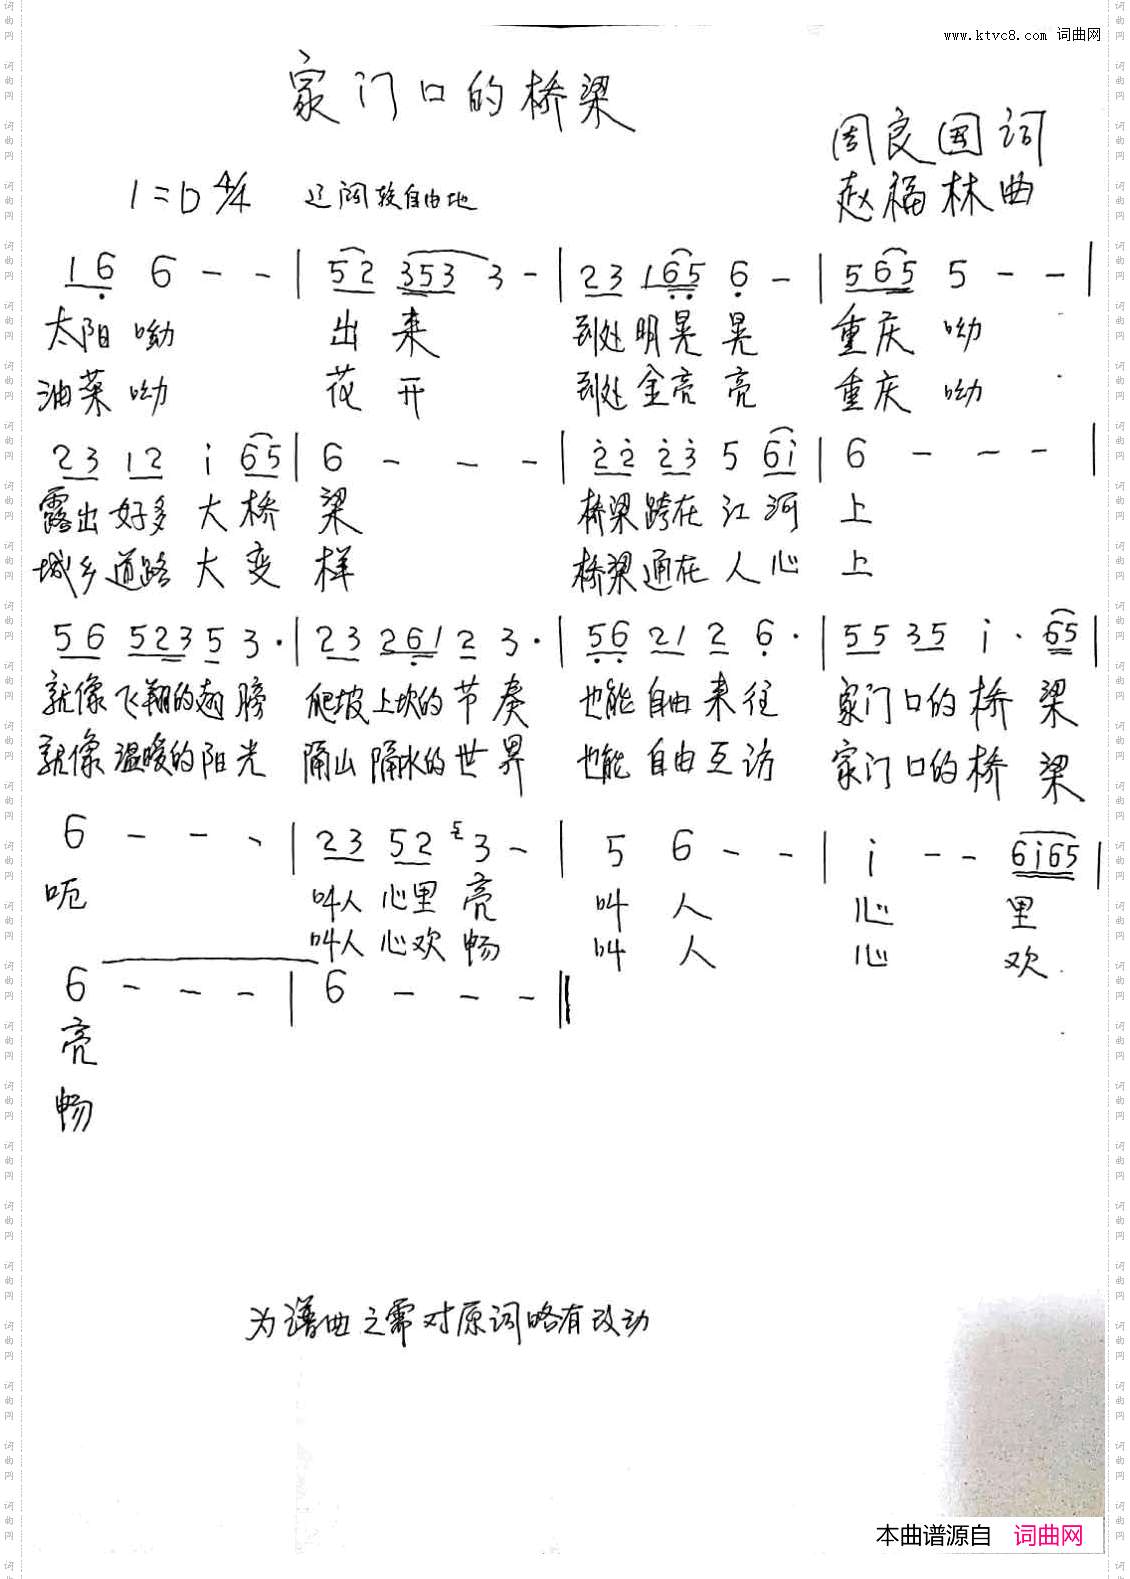 www.ktvc8.com 词曲网
家门口的桥梁
周良国 词
赵福林 曲
1=D 4/4 辽阔较自由地
1 6 6 - - | 5 2 3 5 3 3 - | 2 3 1 6 5 6 - | 5 6 5 5 - - |
太阳呦 出来 到处明晃晃 重庆呦
油菜呦 花开 到处金亮亮 重庆呦
2 3 1 2 i 6 5 | 6 - - - | 2 2 2 3 5 6 i | 6 - - - |
露出好多大桥梁 桥梁跨在江河上
城乡道路大变样 桥梁通在人心上
5 6 5 2 3 5 3 · | 2 3 2 6 1 2 3 · | 5 6 2 1 2 6 · | 5 5 3 5 i · 6 5 |
就像飞翔的翅膀 爬坡上坎的节奏 也能自由来往 家门口的桥梁
就像温暖的阳光 隔山隔水的世界 也能自由互访 家门口的桥梁
6 - - - | 2 3 5 2 5 3 - | 5 6 - - | i - - 6 i 6 5 |
呃 叫人心里亮 叫人心里
叫人心欢畅 叫人心欢
6 - - - | 6 - - - ‖
亮
畅
为谱曲之需对原词略有改动
本曲谱源自 词曲网